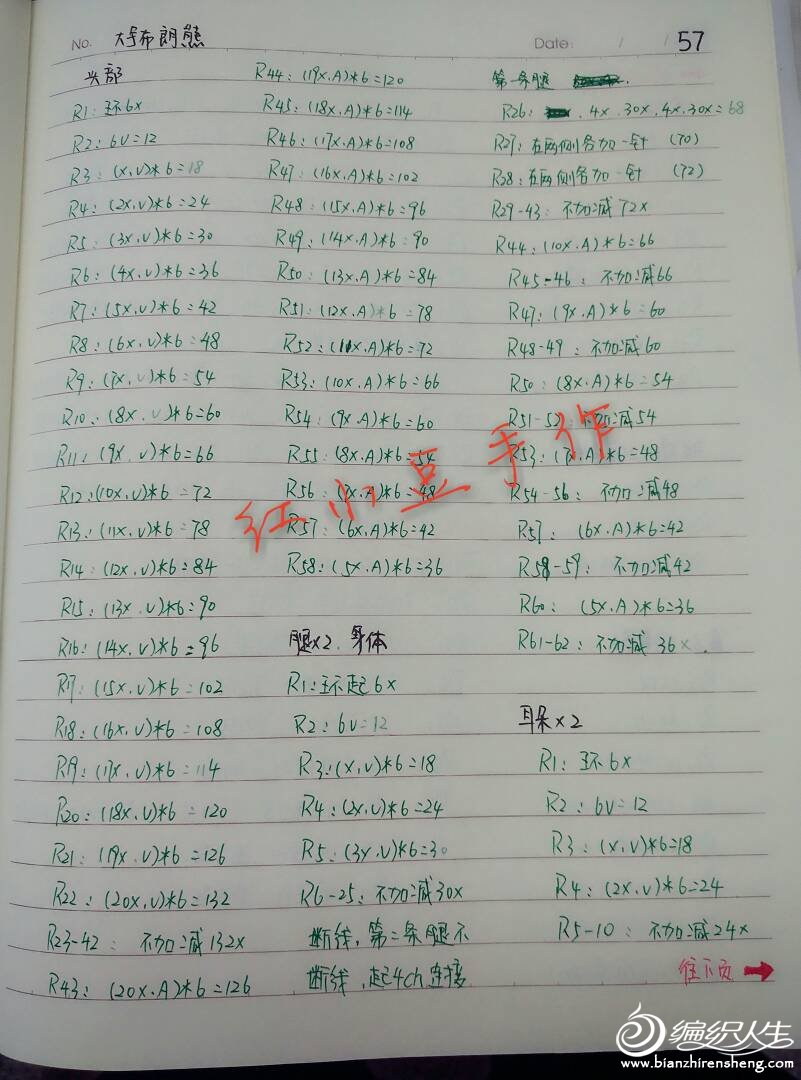 No. 大号布朗熊
Date: / / 57
头部
R1: 环6x
R2: 6V=12
R3: (x,v)*6=18
R4: (2x,v)*6=24
R5: (3x,v)*6=30
R6: (4x,v)*6=36
R7: (5x,v)*6=42
R8: (6x,v)*6=48
R9: (7x,v)*6=54
R10: (8x,v)*6=60
R11: (9x,v)*6=66
R12: (10x,v)*6=72
R13: (11x,v)*6=78
R14: (12x,v)*6=84
R15: (13x,v)*6=90
R16: (14x,v)*6=96
R17: (15x,v)*6=102
R18: (16x,v)*6=108
R19: (17x,v)*6=114
R20: (18x,v)*6=120
R21: (19x,v)*6=126
R22: (20x,v)*6=132
R23-42: 不加减132x
R43: (20x.A)*6=126
R44: (19x.A)*6=120
R45: (18x.A)*6=114
R46: (17x.A)*6=108
R47: (16x.A)*6=102
R48: (15x.A)*6=96
R49: (14x.A)*6=90
R50: (13x.A)*6=84
R51: (12x.A)*6=78
R52: (11x.A)*6=72
R53: (10x.A)*6=66
R54: (9x.A)*6=60
R55: (8x.A)*6=54
R56: (7x.A)*6=48
R57: (6x.A)*6=42
R58: (5x.A)*6=36
腿x2. 身体
R1: 环起6x
R2: 6V=12
R3: (x,v)*6=18
R4: (2x,v)*6=24
R5: (3x,v)*6=30
R6-25: 不加减30x
断线,第二条腿不
断线,起4ch连接
第一条腿
R26: 4x.30x.4x.30x=68
R27: 在两侧各加一针 (70)
R28: 在两侧各加一针 (72)
R29-43: 不加减72x
R44: (10x.A)*6=66
R45-46: 不加减66
R47: (9x.A)*6=60
R48-49: 不加减60
R50: (8x.A)*6=54
R51-52: 不加减54
R53: (7x.A)*6=48
R54-56: 不加减48
R57: (6x.A)*6=42
R58-59: 不加减42
R60: (5x.A)*6=36
R61-62: 不加减36x.
耳朵x2
R1: 环6x
R2: 6V=12
R3: (x,v)*6=18
R4: (2x,v)*6=24
R5-10: 不加减24x
往下页→
红小豆手作
编织人生
www.bianzhirensheng.com